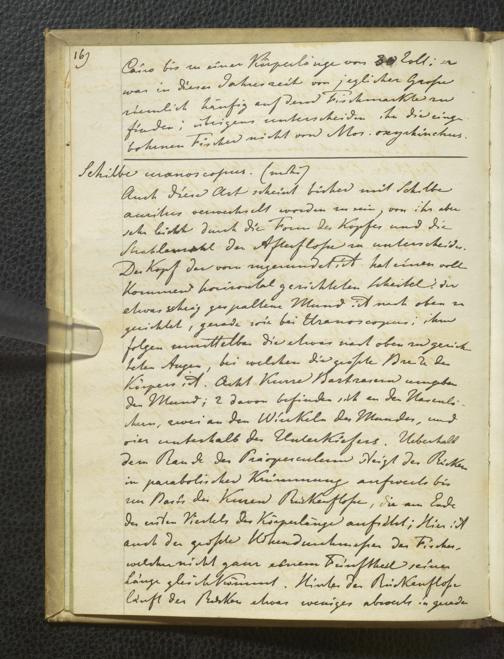 16)
Cairo bis zu einer Körperlänge von 30 Zoll; er
war in dieser Jahreszeit von jeglicher Große
ziemlich häufig auf dem Fischmarkte zu
finden; übrigens unterscheiden ihn die einge-
bohenen Fischer nicht von Mor. oxyrhinchus.
Schilbe uranoscopus. (mihi)
Auch diese Art scheint bisher mit Schilbe
auritus verwechselt worden zu sein, von ihr aber
sehr leicht durch die Form des Kopfes und die
Strahlenzahl der Afterflosse zu unterscheiden.
Der Kopf der vorn zugerundet ist hat einen voll
kommen horizontal gerichteten Scheitel; der
etwas schräg gespaltene Mund ist nach oben zu
gerichtet, gerade wie bei Uranoscopus; ihm
folgen unmittelbar die etwas nach oben zu gerich
teten Augen, bei welchen die größte Breite des
Körpers ist. Acht kurze Bartfasern umgeben
den Mund; 2 davon befinden sich an den Nasenlö-
chern, zwei an den Winkeln des Mundes, und
vier unterhalb des Unterkiefers. Oberhalb
dem Rande des Präoperculum steigt der Rücken
in parabolischer Krümmung aufwerts bis
zur Basis der kurzen Rückenflosse, die am Ende
des ersten Viertels der Körperlänge aufsitzt; Hier ist
auch der größte Höhendurchmesser des Fisches,
welcher nicht ganz einem Fünftheil seiner
Länge gleich kömmt. Hinter der Rückenflosse
läuft der Rücken etwas weniges abwerts in gerader